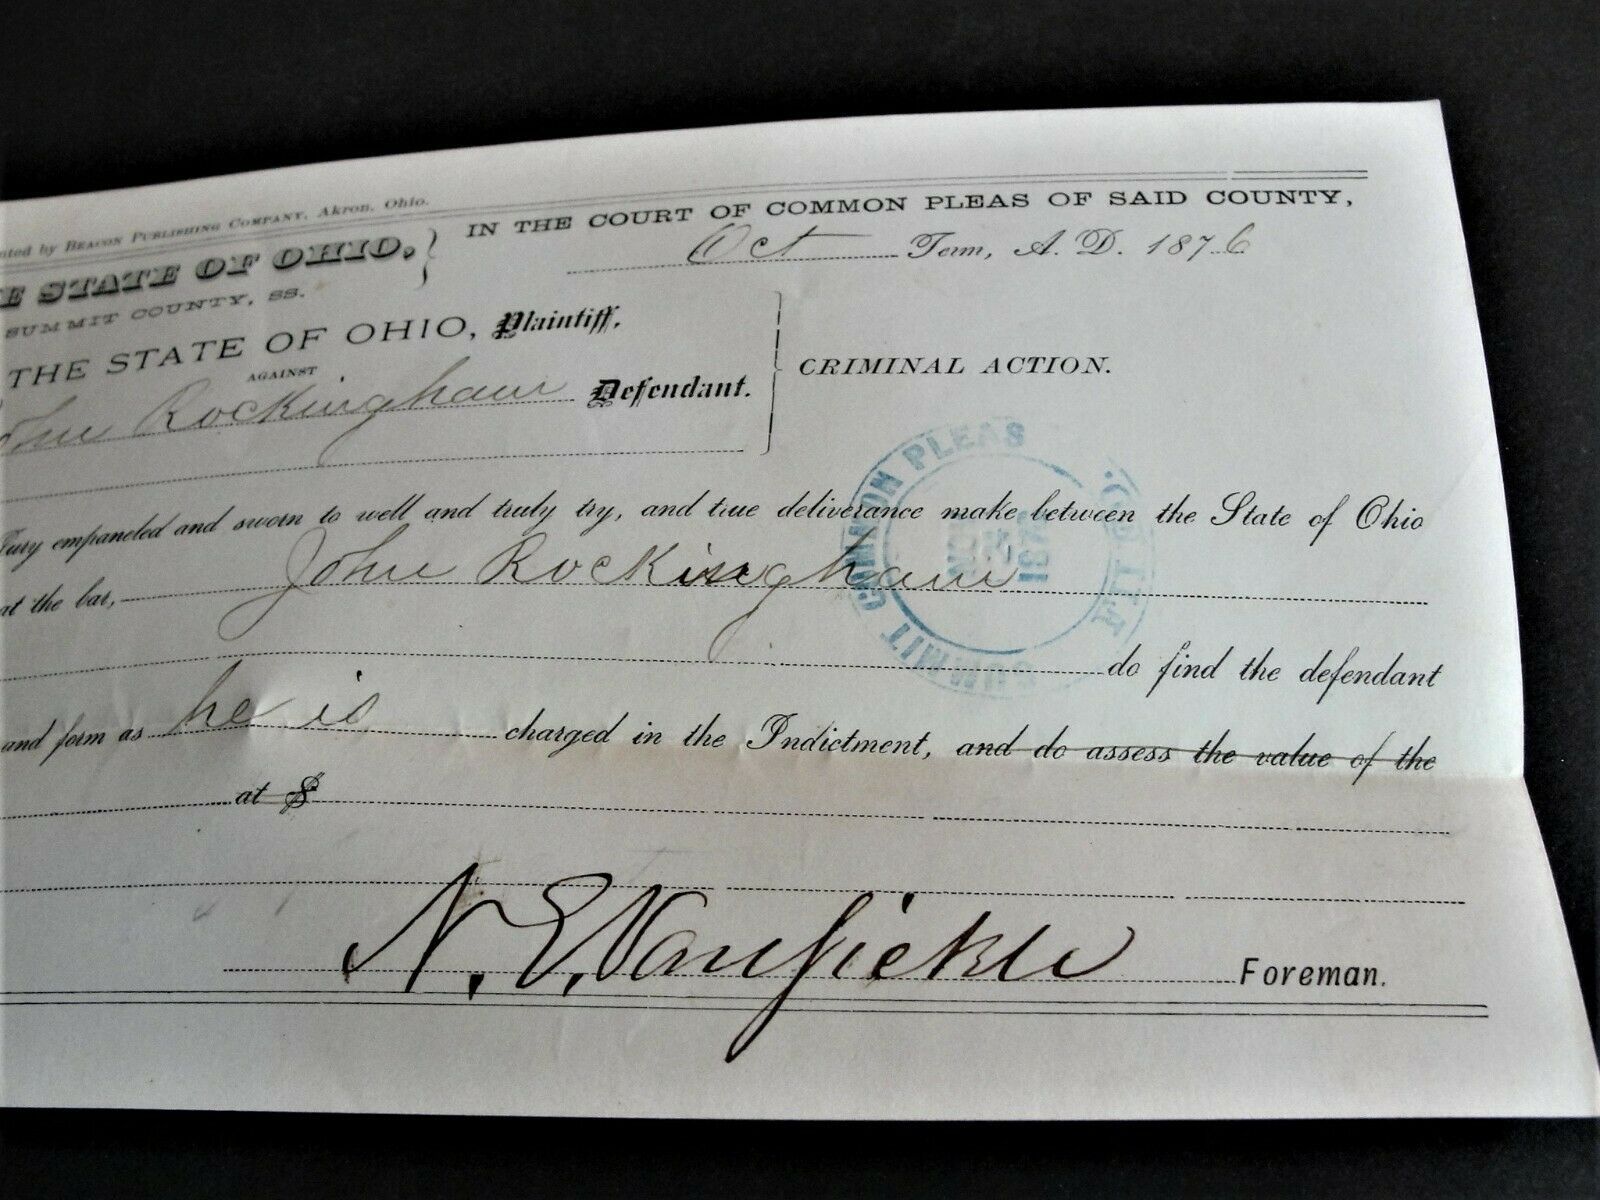 nted by BEACON PUBLISHING COMPANY, Akron, Ohio.
E STATE OF OHIO,
SUMMIT COUNTY, SS.
IN THE COURT OF COMMON PLEAS OF SAID COUNTY,
Oct Term, A. D. 1876
THE STATE OF OHIO, Plaintiff,
AGAINST
ohn Rockingham Defendant.
CRIMINAL ACTION.
Jury empaneled and sworn to well and truly try, and true deliverance make between the State of Ohio
at the bar, John Rockingham
do find the defendant
and form as he is charged in the Indictment, and do assess the value of the
at $
N. E. Vansickle Foreman.
SUMMIT COMMON PLEAS